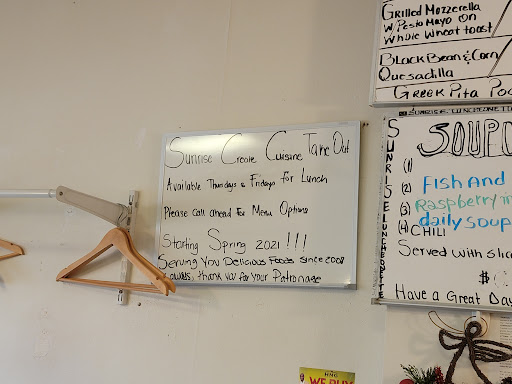 Grilled Mozzerella
W/Pesto Mayo on
Whole Wheat toast
Black Bean & Corn
Quesadilla
Greek Pita
Sunrise Creole Cuisine Take Out
Available Thursdays & Fridays for Lunch
Please Call ahead For Menu Options
Starting Spring 2021 !!!
Serving You Delicious Foods Since 2002
thank you for your Patronage
SUNRISE LUNCHEONETTE
SOUP
(1)
(2) Fish And
(3) Raspberry
daily soup
(4) CHILI
Served with
$
Have a Great Day
WE BUY